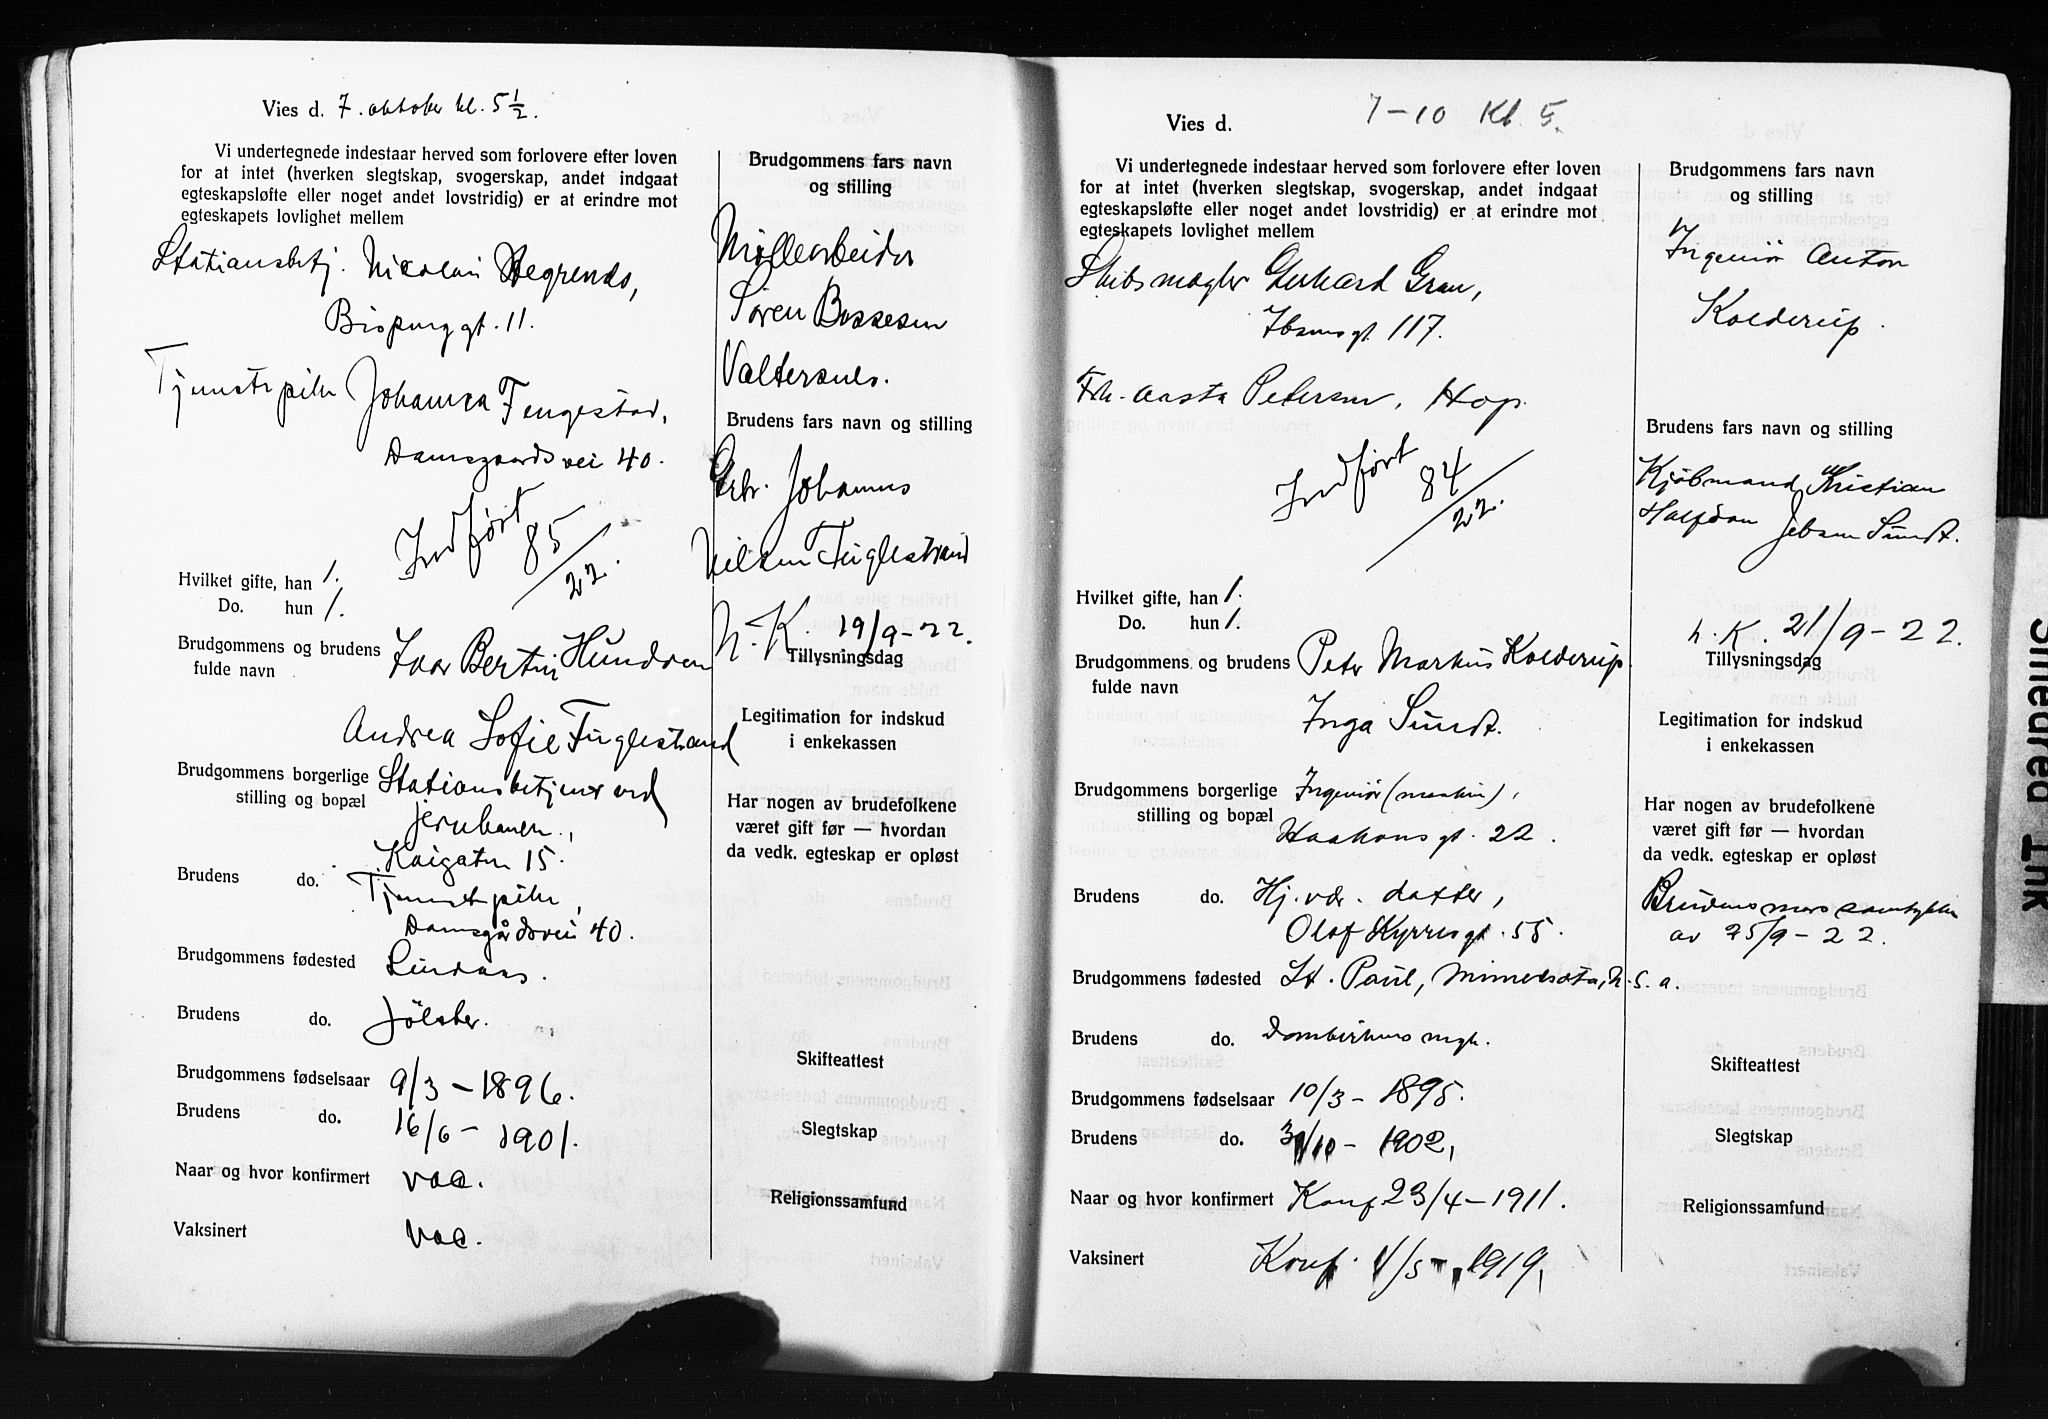 Vies d. 7. oktober kl. 5 1/2.
Vi undertegnede indestaar herved som forlovere efter loven
for at intet (hverken slegtskap, svogerskap, andet indgaat
egteskapsløfte eller noget andet lovstridig) er at erindre mot
egteskapets lovlighet mellem
Stationsbetj. Nicolai
gt. 11.
Johanna
Damsgaardsvei 40.
Indført 85/22.
Hvilket gifte, han 1.
Do. hun 1.
Brudgommens og brudens
fulde navn
Ivar Bertin
Andrea Sofie Fuglestrand
Brudgommens borgerlige
stilling og bopæl
Stationsbetjent ved
jernbanen,
Kaigaten 15.
Brudens do.
Damsgårdsvei 40.
Brudgommens fødested Lindaas.
Brudens do. Jölster.
Brudgommens fødselsaar 9/3 - 1896.
Brudens do. 16/6 - 1901.
Naar og hvor konfirmert vac.
Vaksinert vac.
Brudgommens fars navn
og stilling
Møllearbeider
Sören
Brudens fars navn og stilling
Johannes
Nilsen Fuglestrand
N.K. 19/9-22.
Tillysningsdag
Legitimation for indskud
i enkekassen
Har nogen av brudefolkene
været gift før — hvordan
da vedk. egteskap er opløst
Skifteattest
Slegtskap
Religionssamfund
Vies d. 7-10 Kl. 5.
Vi undertegnede indestaar herved som forlovere efter loven
for at intet (hverken slegtskap, svogerskap, andet indgaat
egteskapsløfte eller noget andet lovstridig) er at erindre mot
egteskapets lovlighet mellem
Skibsmægler Gerhard Gran,
Ibsensgt. 117.
Frk. Aasta Petersen, Hop.
Indført 84/22.
Hvilket gifte, han 1.
Do. hun 1.
Brudgommens og brudens
fulde navn
Peter Markus Kolderup.
Inga Sundt.
Brudgommens borgerlige
stilling og bopæl
Ingeniör (maskin),
Haakonsgt. 22.
Brudens do. Hj.vær. datter,
Olaf Kyrresgt. 55.
Brudgommens fødested St. Paul, Minnesota, U.S.A.
Brudens do. Domkirkens mgh.
Brudgommens fødselsaar 10/3 - 1895.
Brudens do. 31/10 - 1902,
Naar og hvor konfirmert Konf 23/4 - 1911.
Vaksinert Konf. 4/5 - 1919,
Brudgommens fars navn
og stilling
Ingeniör Anton
Kolderup.
Brudens fars navn og stilling
Kjöbmand Kristian
Halfdan Jebsen Sundt.
N.K. 21/9-22.
Tillysningsdag
Legitimation for indskud
i enkekassen
Har nogen av brudefolkene
været gift før — hvordan
da vedk. egteskap er opløst
Brudens mors samtykke
av 25/9-22.
Skifteattest
Slegtskap
Religionssamfund